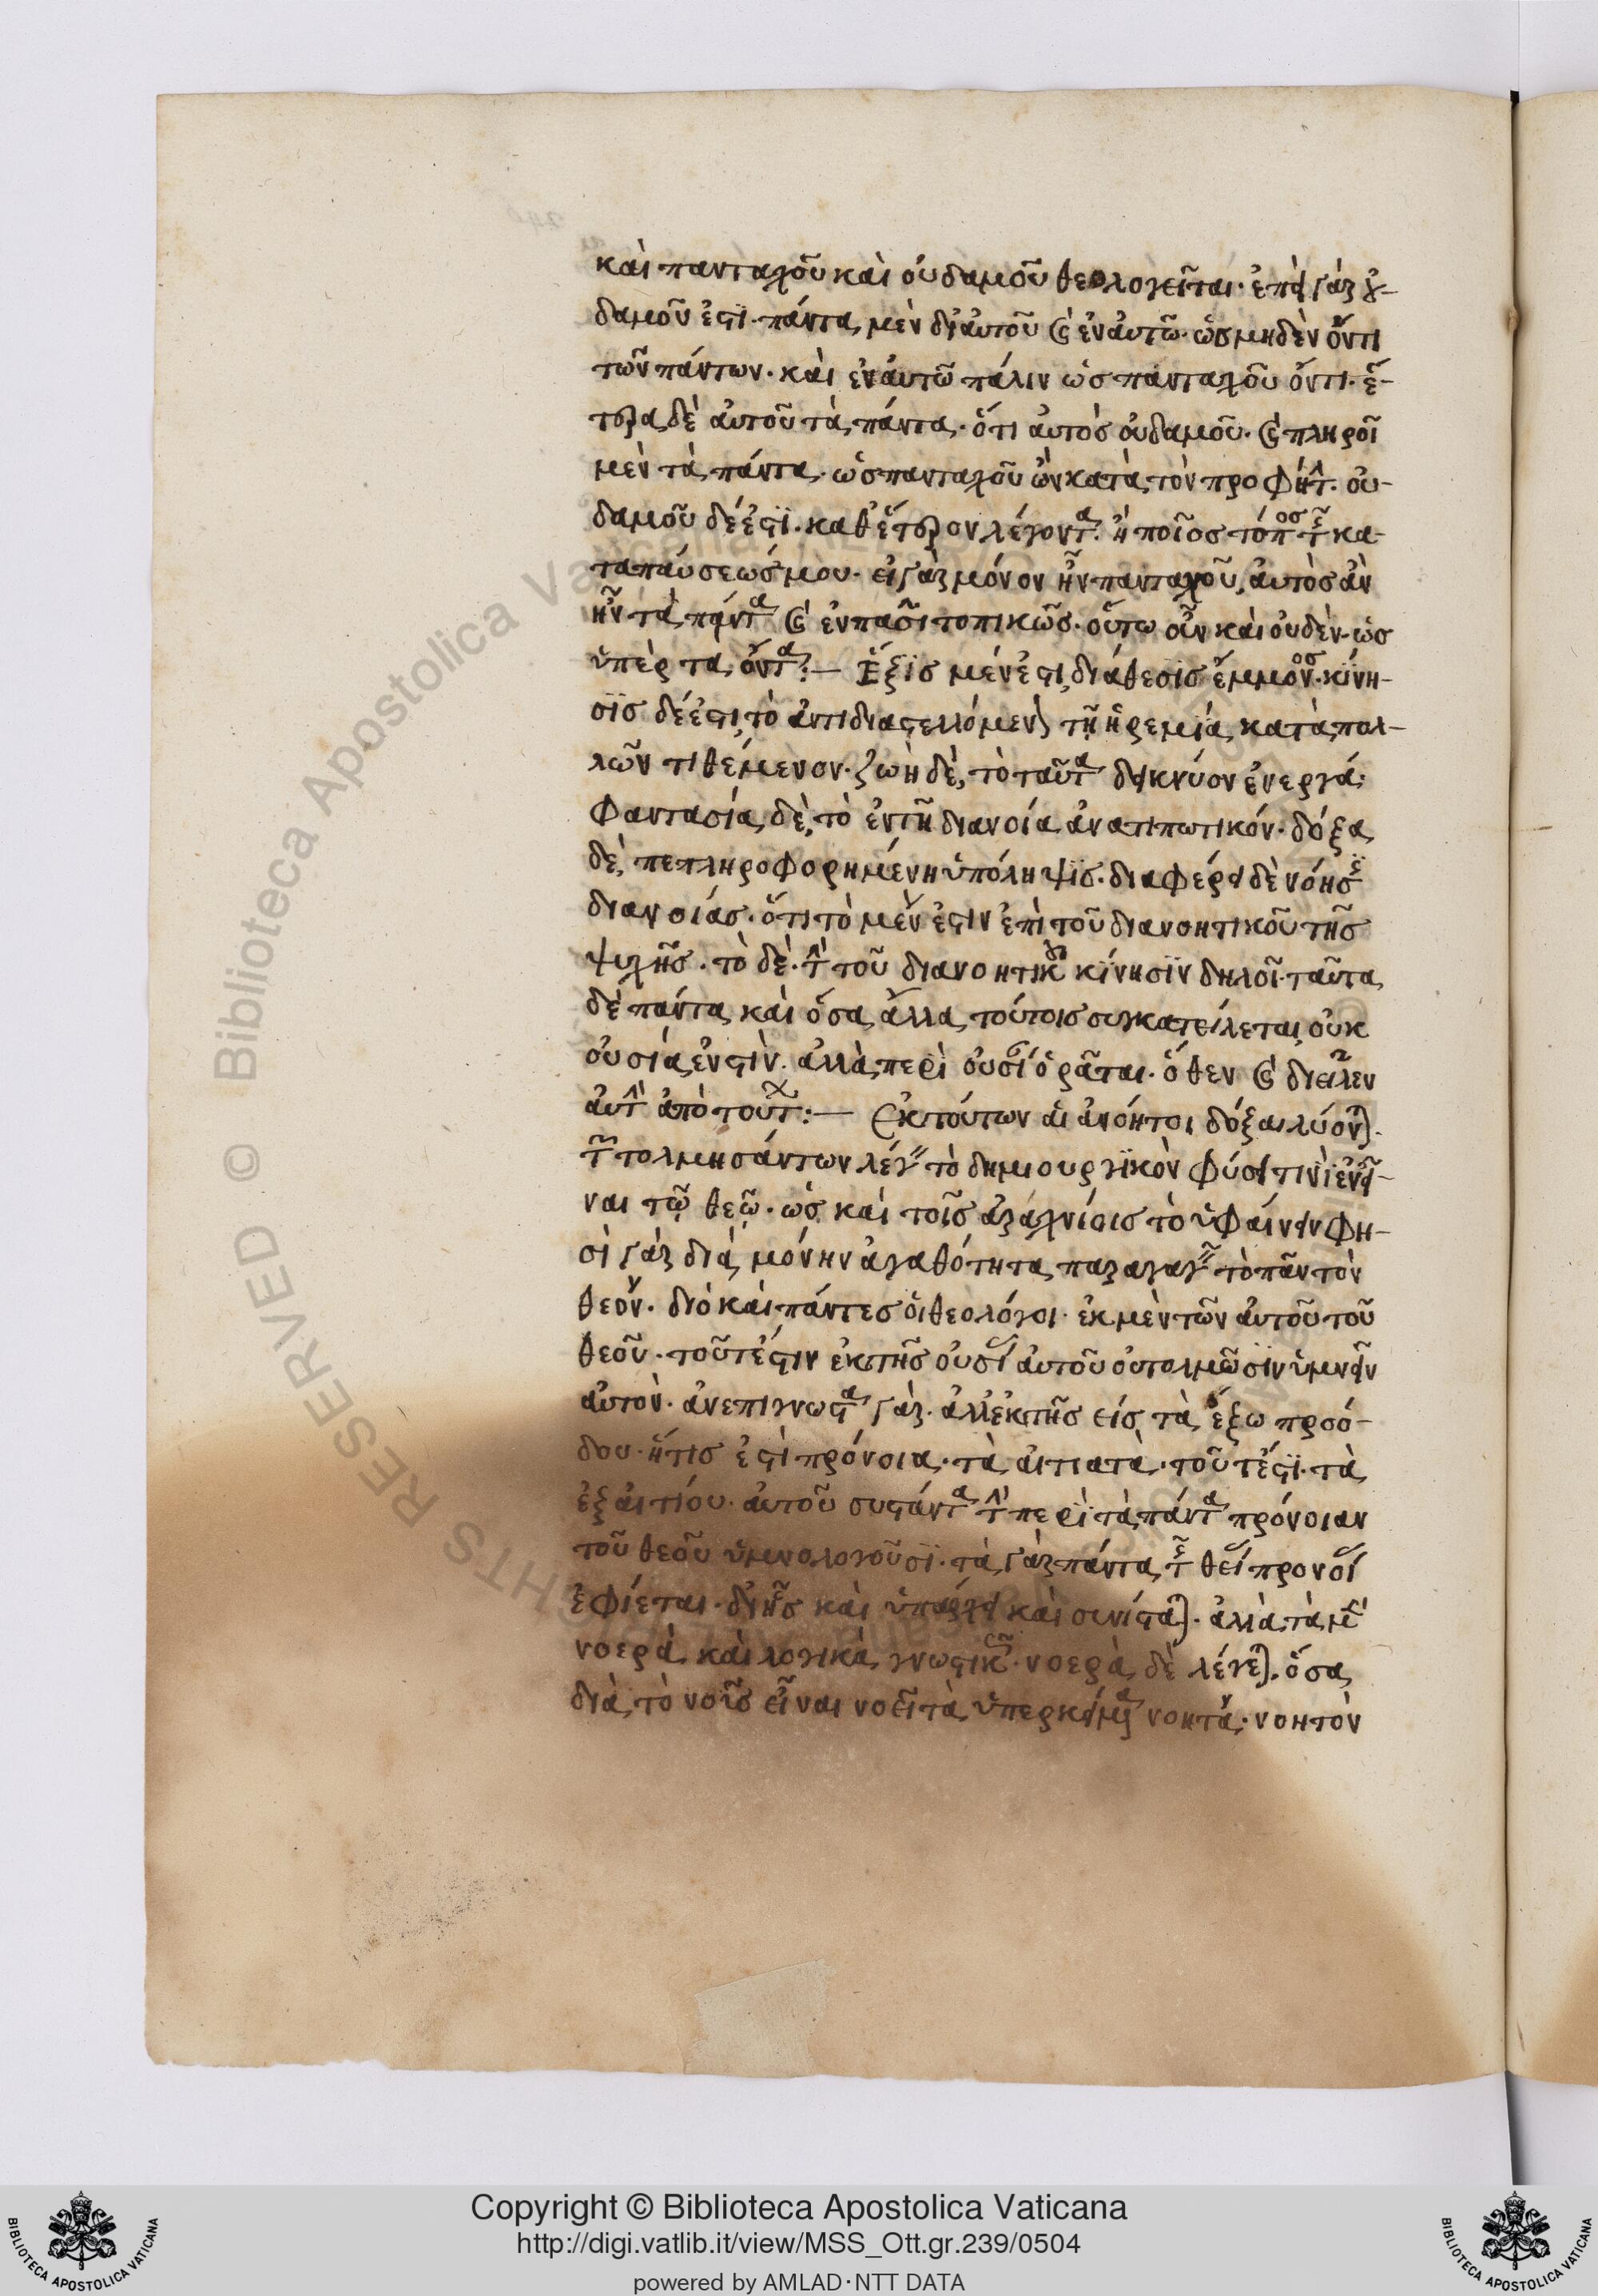 καὶ πανταχοῦ καὶ οὐδαμοῦ θεολογεῖται· ἐπεὶ γὰρ οὐ-
δαμοῦ ἐστι· πάντα μὲν δι' αὐτοῦ καὶ ἐν αὐτῶ· ὡς μηδὲν ὄντι
τῶν πάντων· καὶ ἐν αὐτῶ πάλιν ὡς πανταχοῦ ὄντι· ἕ-
τερα δὲ αὐτοῦ τὰ πάντα· ὅτι αὐτὸς οὐδαμοῦ· καὶ πληροῖ
μὲν τὰ πάντα· ὡς πανταχοῦ ὢν κατὰ τὸν προφήτην· οὐ-
δαμοῦ δέ ἐστι· καθ' ἕτερον λέγοντα· ἢ ποῖος τόπος τῆς κα-
ταπαύσεώς μου· εἰ γὰρ μόνον ἦν πανταχοῦ, αὐτὸς ἂν
ἦν τὰ πάντα καὶ ἐν πᾶσι τοπικῶς· οὕτω οὖν καὶ οὐδὲν· ὡς
ὑπὲρ τα ὄντα:— Ἕξις μέν ἐστι διάθεσις ἔμμονος· κίνη-
σις δέ ἐστι τὸ ἀντιδιαστελλόμενον τῆ ἠρεμία κατὰ πολ-
λῶν τιθέμενον· ζωὴ δὲ, τὸ ταῦτα δεικνύον ἐνεργεία·
φαντασία δὲ, τὸ ἐν τῆ διανοία ἀνατιπωτικόν· δόξα
δὲ πεπληροφορημένη ὑπόληψις· διαφέρει δὲ νόησις
διανοίας· ὅτι τὸ μὲν ἐστιν ἐπὶ τοῦ διανοητικοῦ τῆς
ψυχῆς· τὸ δὲ· τὴν τοῦ διανοητικοῦ κίνησιν δηλοῖ· ταῦτα
δὲ πάντα καὶ ὅσα ἄλλα τούτοις συγκατείλεται οὐκ
οὐσία ἐνστὶν· ἀλλὰ περὶ οὐσίαν ὁρᾶται· ὅθεν καὶ διεῖλεν
αὐτὴν ἀπὸ τούτων:— Ἐκ τούτων αἱ ἀνόητοι δόξαι λύονται·
τῶν τολμησάντων λέγειν τὸ δημιουργικὸν φύσει τινὶ ἐνεῖ-
ναι τῷ θεῷ· ὡς καὶ τοῖς ἀράχνίοις τὸ ὑφαίνειν φη-
σὶ γὰρ διὰ μόνην ἀγαθότητα παραγαγεῖν τὸ πᾶν τὸν
θεόν· διὸ καὶ πάντες οἱ θεολόγοι· ἐκ μὲν τῶν αὐτοῦ τοῦ
θεοῦ· τοῦτέστιν ἐκ τῆς οὐσίας αὐτοῦ οὐ τολμῶσιν ὑμνεῖν
αὐτὸν· ἀνεπίγνωστα γάρ· ἀλλ' ἐκ τῆς εἰς τὰ ἔξω προό-
δου· ἥτις ἐστὶ πρόνοια· τὰ αἰτιατὰ· τοῦτέστι· τὰ
ἐξ αἰτίου αὐτοῦ συστάντα τὴν περὶ τὰ πάντα πρόνοιαν
τοῦ θεοῦ ὑμνολογοῦσι· τὰ γὰρ πάντα τῆς θείας προνοίας
ἐφίεται· δι' ἧς καὶ ὑπάρχει καὶ συνίσταται· ἀλλὰ τὰ μὲν
νοερὰ καὶ λογικὰ γνωστικῶς· νοερὰ δὲ λέγεται, ὅσα
διὰ τὸ νοῦς εἶναι νοεῖ τὰ ὑπερκείμενα νοητά· νοητὸν
Copyright © Biblioteca Apostolica Vaticana
http://digi.vatlib.it/view/MSS_Ott.gr.239/0504
powered by AMLAD·NTT DATA